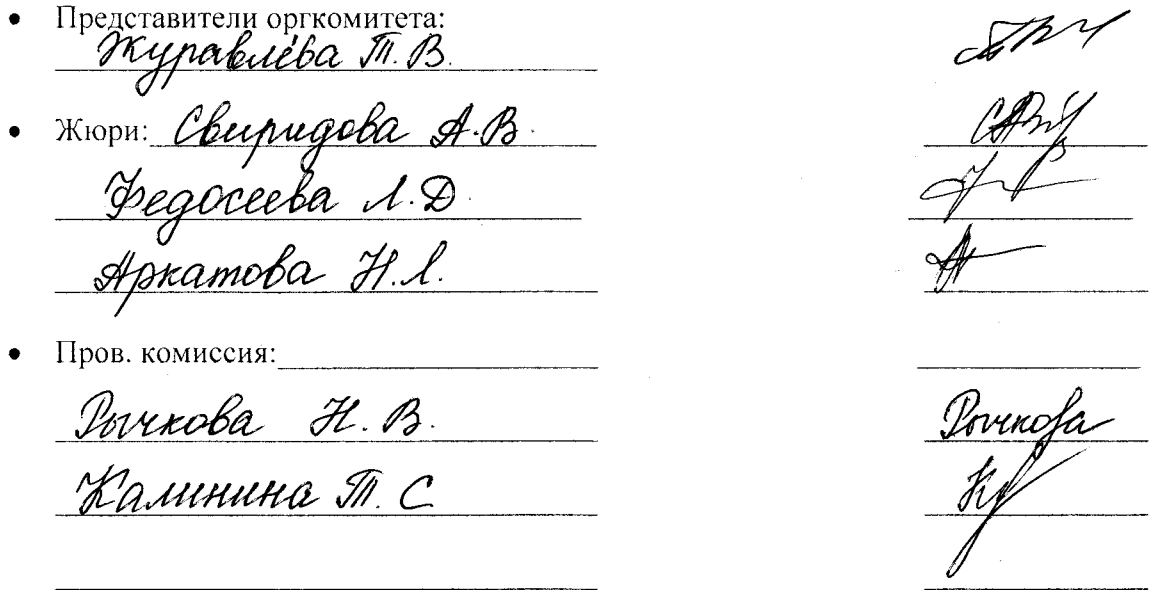 • Представители оргкомитета:
Журавлёва Т. В.
• Жюри: Свиридова А. В.
Федосеева Л. Д
Аркатова Н. Л.
• Пров. комиссия:
Рычкова Н. В. Рычкова
Калинина Т. С